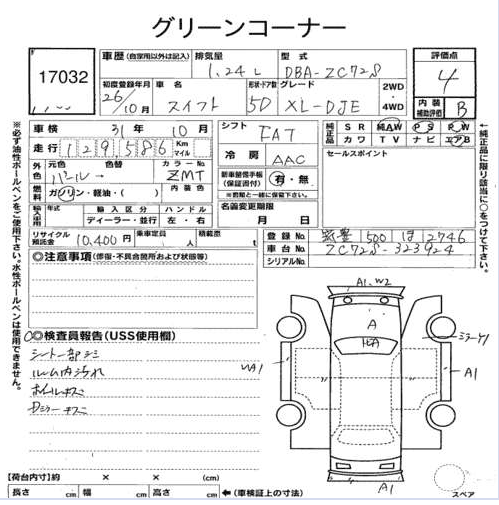 グリーンコーナー
17032
車歴 (自家用以外は記入) 排気量 型式
1.24 L DBA-ZC72S
評価点
4
初度登録年月 車名 形状・ドア数 グレード 2WD
26/10月 スイフト 5D XL-DJE 4WD
内装補助評価 B
車検 31年 10月
シフト FAT
純正品 SR 純AW PS PW
カワ TV ナビ エアB
走行 129,586 Km マイル
冷房 AAC
セールスポイント
外色 元色 色替 カラーNo.
パール ZMT
新車整備手帳(保証書付) 有・無
燃料 ガソリン・軽油・( ) 内装色
輸入車用 年式 輸入区分 ハンドル
ディーラー・並行 左・右
名義変更期限
月 日
リサイクル預託金 10,400円 乗車定員 人 積載量 t
登録No. 1500 ほ 2746
車台No. ZC72S-323924
シリアルNo.
◎注意事項(修復・不具合箇所および状態等)
◎検査員報告(USS使用欄)
シート一部シミ
ルーム内汚れ
ホイルキズ
Dミラーキズ
A1、W2
A
ミラーA1
A1
A1
スペア
【荷台内寸】約 × × (cm)
長さ cm 幅 cm 高さ cm ←(車検証上の寸法)
※必ず油性ボールペンをご使用下さい。水性ボールペンは使用できません。
←純正品に限り該当に○をつけて下さい。